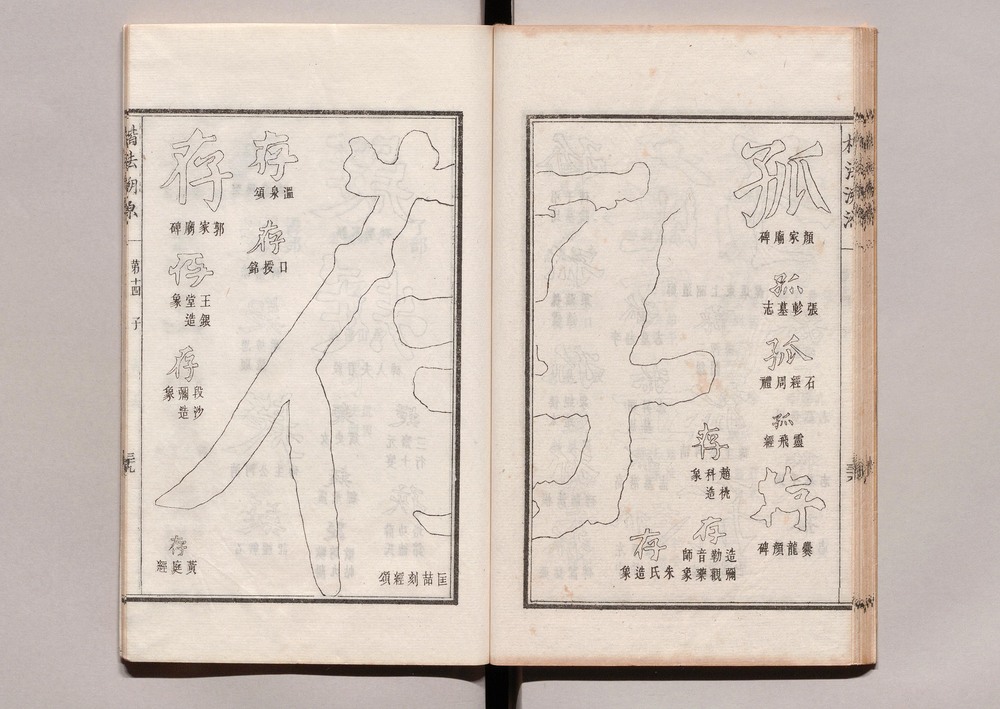 孤
顏家廟碑
孤
張軫墓志
孤
石經周禮
孤
靈飛經
存
爨龍顏碑
存
趙桃科造象
存
造彌勒觀音藥師象
存
朱氏造象
匡喆刻經頌
存
溫泉頌
存
口授銘
存
郭家廟碑
存
王銀堂造象
存
段沙彌造象
存
黃庭經
楷法溯源
第十四
子
三九